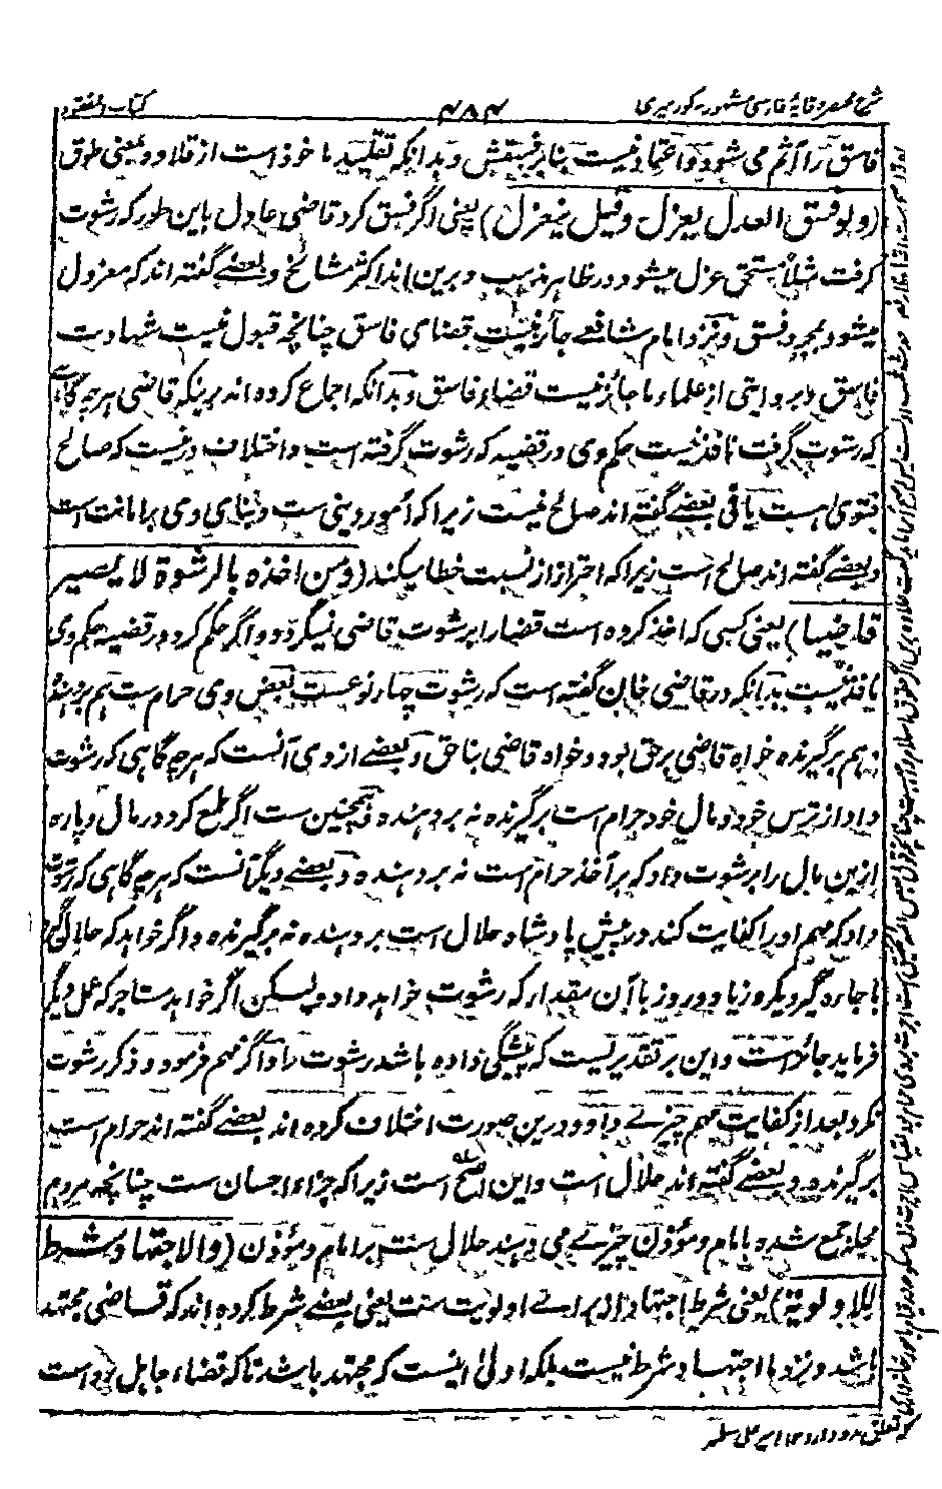 شرح مختصر وقایهٔ فارسی مشهور به کورمیری
۴۸۴
کتاب المفقود
فاسق را آثم می شود و اعتماد نیست بنا بر فسقش و بدانکه تقلید ماخوذ است از قلاده و یعنی طوق
(ولو فسق العدل یعزل وقیل ینعزل) یعنی اگر فسق کرد قاضی عادل باین طور که رشوت
گرفت مثلاً مستحق عزل میشود در ظاهر مذهب و برین اند اکثر مشائخ و بعضے گفته اند که معزول
میشود بمجرد فسق و نزد امام شافعے جائز نیست قضای فاسق چنانچه قبول نیست شهادت
فاسق و بروایتی از علماء ما جائز نیست قضاء فاسق و بدانکه اجماع کرده اند برینکه قاضی هر چه گاهے
که رشوت گرفت نافذ نیست حکم وی در قضیه که رشوت گرفته است و اختلاف درنیست که صالح
فتوی است یا نی بعضے گفته اند صالح نیست زیرا که امور دینی ست و بنای وی بر امانت است
و بعضے گفته اند صالح است زیرا که احتراز از نسبت خطا میکند (ومن اخذه بالرشوة لا یصیر
قاضیا) یعنی کسی که اخذ کرده است قضا را برشوت قاضی نمیگردد و اگر حکم کرد در قضیه حکم وی
نافذ نیست بدانکه در قاضی خان گفته است که رشوت چهار نوعست بعض وی حرام ست هم بر دهنده
و هم بر گیرنده خواه قاضی بر حق بود و خواه قاضی بناحق و بعضے از وی آنست که هر چه گاهی که رشوت
داد از ترس خود و مال خود حرام است بر گیرنده نه بر دهنده و همچنین ست اگر طمع کرد در مال و پاره
ازین مال را برشوت داد که بر آخذ حرام است نه بر دهنده و بعضے دیگر آنست که هر چه گاهی که رشوت
داد که مهم او را کفایت کند در پیش پادشاه حلال است بر دهنده نه بر گیرنده و اگر خواهد که حلال گیرد
باجاره گیرد یکروز یا دو روز با آن مقدار که رشوت خواهد داد ولیکن اگر خواهد مستاجر که عمل دیگر
فرماید جائز است و این بر تقدیریست که پیشگی داده باشد رشوت را و اگر مهم فرمود و ذکر رشوت
نکرد بعد از کفایت مهم چیزے داد و درین صورت اختلاف کرده اند بعضے گفته اند حرام است
بر گیرنده و بعضے گفته اند حلال است و این اصح است زیرا که جزاء احسان ست چنانچه مردم
محله جمع شده با امام و مؤذن چیزے می دهند حلال ست بر امام و مؤذن (والاجتهاد شرط
للاولویة) یعنی شرط اجتهاد از براے اولویت ست یعنی بعضے شرط کرده اند که قاضی مجتهد
باشد و نزد ما اجتهاد شرط نیست بلکه اولیٰ اینست که مجتهد باشد تا که قضاء جاهل